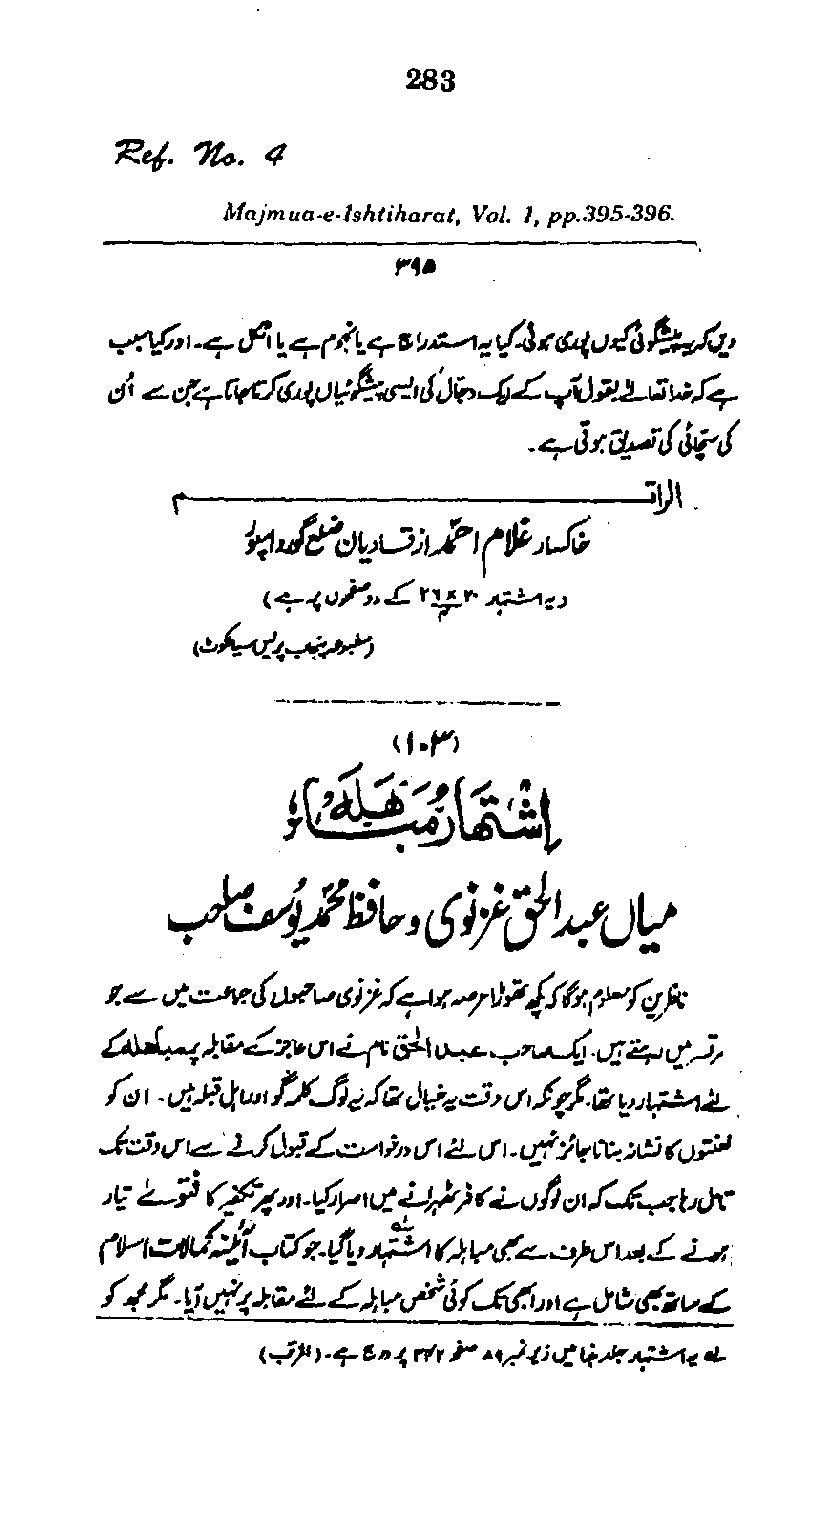 283
Ref. No. 4
Majmua-e-Ishtiharat, Vol. 1, pp.395-396.
۳۹۵
دیں کہ یہ پیشگوئی کیوں پوری ہوئی۔ کیا یہ استدراج ہے یا نجوم ہے یا اٹکل ہے۔ اور کیا سبب
ہے کہ خدا تعالےٰ بقول آپ کے ایک دجال کی ایسی پیشگوئیاں پوری کرتا جاتا ہے جن سے اُن
کی سچائی کی تصدیق ہوتی ہے۔
الراقم
خاکسار غلام احمدؐ از قادیان ضلع گورداسپور
(یہ اشتہار ۲۰×۲۶/۴ کے دو صفحوں پر ہے)
(مطبوعہ پنجاب پریس سیالکوٹ)
(۱۰۳)
اشتہار مباہلہ
میاں عبدالحق غزنوی و حافظ محمدؐ یوسف صاحب
ناظرین کو معلوم ہوگا کہ کچھ تھوڑا عرصہ ہوا ہے کہ غزنوی صاحبوں کی جماعت میں سے جو
امرتسر میں رہتے ہیں۔ ایک صاحب عبدالحق نام نے اس عاجز کے مقابلہ پر مباہلہ کے
لئے اشتہار دیا تھا۔ مگر چونکہ اس وقت یہ خیال تھا کہ یہ لوگ کلمہ گو اور اہل قبلہ ہیں۔ ان کو
لعنتوں کا نشانہ بنانا جائز نہیں۔ اس لئے اس درخواست کے قبول کرنے سے اس وقت تک
تامل رہا جب تک کہ ان لوگوں نے کافر ٹھہرانے میں اصرار کیا۔ اور پھر تکفیر کا فتوےٰ تیار
ہونے کے بعد اس طرف سے بھی مباہلہ کا اشتہار دیا گیا۔ جو کتاب آئینہ کمالات اسلام
کے ساتھ بھی شامل ہے اور ابھی تک کوئی شخص مباہلہ کے لئے مقابلہ پر نہیں آیا۔ مگر مجھ کو
لہ یہ اشتہار جلد ہذا میں زیر نمبر ۸۹ صفحہ ۳۳۲ پر درج ہے۔ (المرتب)